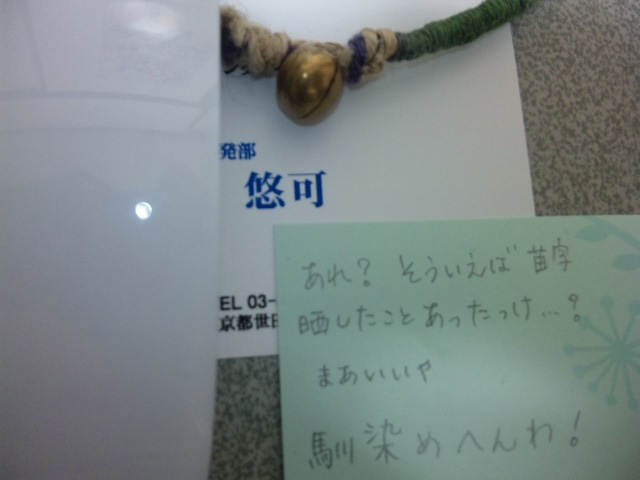 発部
悠可
EL 03-
京都世田
あれ? そういえば 苗字
晒したことあったっけ…?
まあいいや
馴染めへんわ!